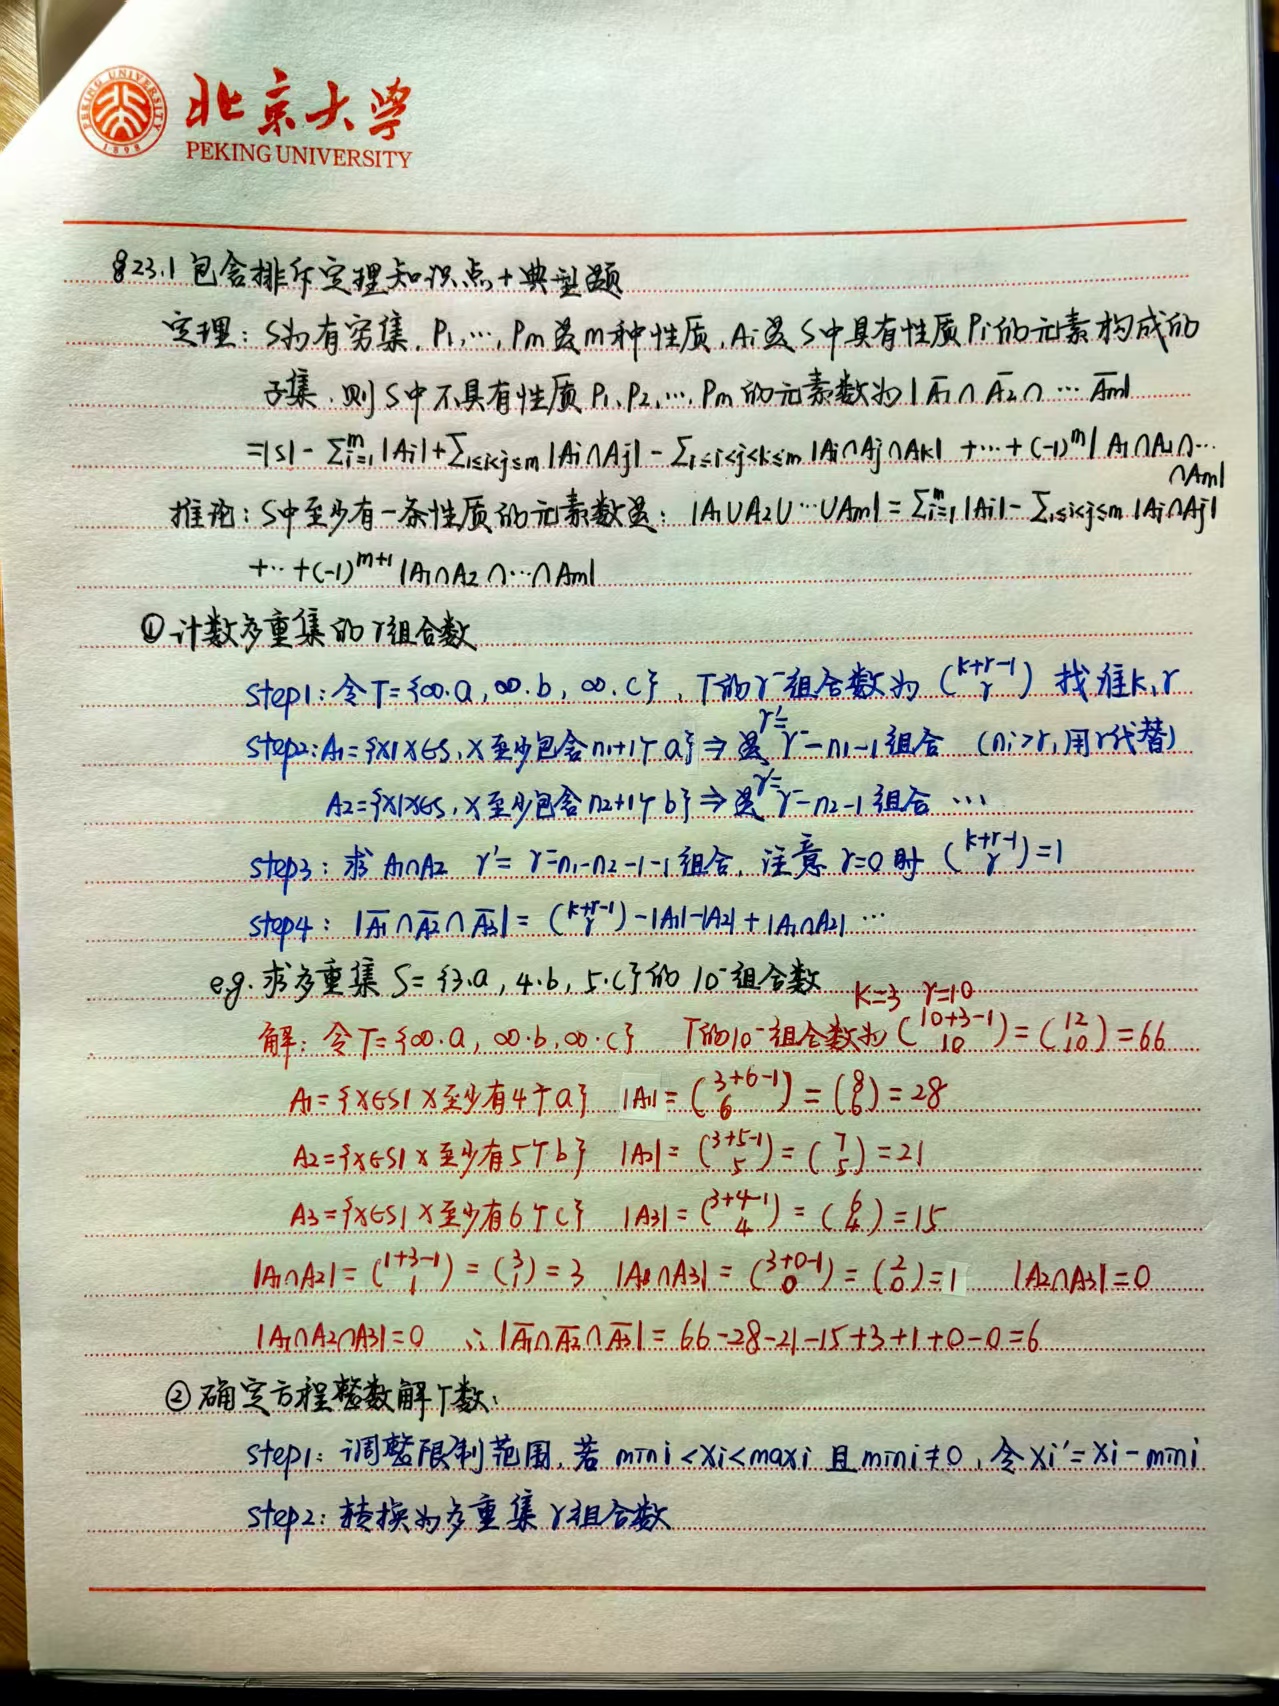 北京大学
PEKING UNIVERSITY
PEKING UNIVERSITY
1898
§23.1 包含排斥定理知识点+典型题
定理：S为有穷集，P₁,…,Pm是m种性质，Ai是S中具有性质Pi的元素构成的
子集，则S中不具有性质P₁,P₂,…,Pm的元素数为|A̅₁∩A̅₂∩…A̅m|
=|S|-∑ᵢ₌₁ᵐ|Ai|+∑₁≤i<j≤m|Ai∩Aj|-∑₁≤i<j<k≤m|Ai∩Aj∩Ak|+…+(-1)ᵐ|A₁∩A₂∩…
∩Am|
推论：S中至少有一条性质的元素数是：|A₁∪A₂∪…∪Am|=∑ᵢ₌₁ᵐ|Ai|-∑₁≤i<j≤m|Ai∩Aj|
+…+(-1)ᵐ⁺¹|A₁∩A₂∩…∩Am|
①计数多重集的r组合数
step1：令T={∞·a,∞·b,∞·c}，T的r-组合数为(k+r-1 r) 找准k,r
step2：A₁={x|x∈S,x至少包含n₁+1个a}⇒是r'=r-n₁-1组合 (ni>r,用r代替)
A₂={x|x∈S,x至少包含n₂+1个b}⇒是r'=r-n₂-1组合…
step3：求A₁∩A₂ r'=r-n₁-n₂-1-1组合，注意r=0时(k+r-1 r)=1
step4：|A̅₁∩A̅₂∩A̅₃|=(k+r-1 r)-|A₁|-|A₂|+|A₁∩A₂|…
e.g.求多重集S={3·a,4·b,5·c}的10-组合数
k=3 r=10
解：令T={∞·a,∞·b,∞·c} T的10-组合数为(10+3-1 10)=(12 10)=66
A₁={x∈S|x至少有4个a} |A₁|=(3+6-1 6)=(8 6)=28
A₂={x∈S|x至少有5个b} |A₂|=(3+5-1 5)=(7 5)=21
A₃={x∈S|x至少有6个c} |A₃|=(3+4-1 4)=(6 4)=15
|A₁∩A₂|=(1+3-1 1)=(3 1)=3 |A₁∩A₃|=(3+0-1 0)=(2 0)=1 |A₂∩A₃|=0
|A₁∩A₂∩A₃|=0 ∴|A̅₁∩A̅₂∩A̅₃|=66-28-21-15+3+1+0-0=6
②确定方程整数解个数：
step1：调整限制范围，若mini<xi<maxi且mini≠0，令xi'=xi-mini
step2：转换为多重集r组合数